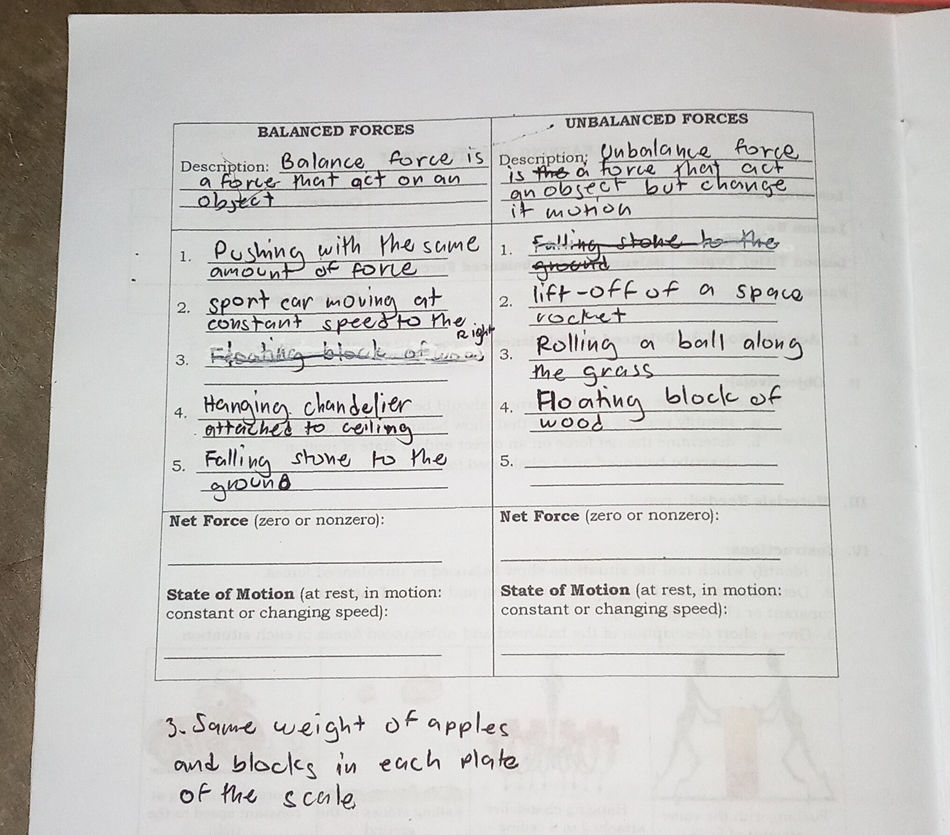 BALANCED FORCES
Description: Balance force is
a force that act on an
object
1. Pushing with the same
amount of force
2. sport car moving at
constant speed to the
Right
3. Floating block of wood
4. Hanging chandelier
attached to ceiling
5. Falling stone to the
ground
Net Force (zero or nonzero):
State of Motion (at rest, in motion:
constant or changing speed):
UNBALANCED FORCES
Description: Unbalance force
is the a force that act
an object but change
it motion
1. Falling stone to the
ground
2. lift-off of a space
rocket
3. Rolling a ball along
the grass
4. Floating block of
wood
5.
Net Force (zero or nonzero):
State of Motion (at rest, in motion:
constant or changing speed):
3. Same weight of apples
and blocks in each plate
of the scale